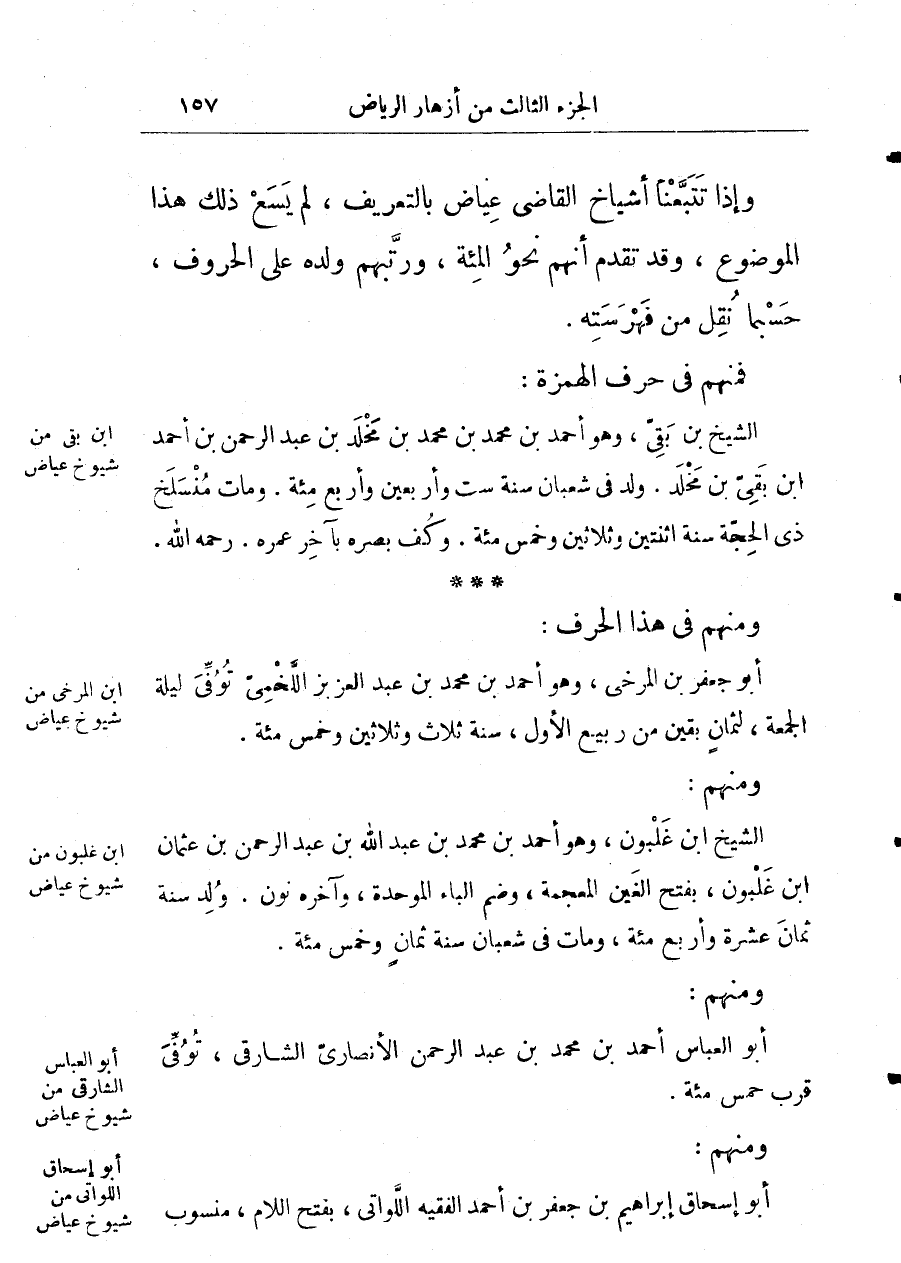 الجزء الثالث من أزهار الرياض ١٥٧
وإذا تَتَبَّعْنَا أشياخ القاضى عِياض بالتعريف ، لم يَسَعْ ذلك هذا
الموضوع ، وقد تقدم أنهم نحوُ المِئة ، ورتَّبهم ولده على الحروف ،
حَسْبما نُقِل من فَهْرَسَتِه .
فمنهم فى حرف الهمزة :
الشيخ بن بَقِىّ ، وهو أحمد بن محمد بن محمد بن مَخْلَد بن عبد الرحمن بن أحمد
ابن بَقِىّ بن مَخْلَد . ولد فى شعبان سنة ست وأربعين وأربع مِئة . ومات مُنْسَلَخ
ذى الحِجّة سنة اثنتين وثلاثين وخمس مئة . وكُف بصره بآخِر عمره . رحمه الله .
ابن بقى من
شيوخ عياض
***
ومنهم فى هذا الحرف :
أبو جعفر بن المرخى ، وهو أحمد بن محمد بن عبد العزيز اللَّخْمِىّ تُوُفِّىَ ليلة
الجمعة ، لثمانٍ بقين من ربيع الأول ، سنة ثلاث وثلاثين وخمس مئة .
ابن المرخى من
شيوخ عياض
ومنهم :
الشيخ ابن غَلْبون ، وهو أحمد بن محمد بن عبد الله بن عبد الرحمن بن عثمان
ابن غَلْبون ، بفتح الغَين المعجمة ، وضم الباء الموحدة ، وآخره نون . وُلِد سنة
ثمانَ عشرة وأربع مئة ، ومات فى شعبان سنة ثمانٍ وخمس مئة .
ابن غلبون من
شيوخ عياض
ومنهم :
أبو العباس أحمد بن محمد بن عبد الرحمن الأنصارىّ الشارقى ، تُوُفِّىَ
قرب خمس مئة .
أبو العباس
الشارقى من
شيوخ عياض
ومنهم :
أبو إسحاق إبراهيم بن جعفر بن أحمد الفقيه اللَّواتى ، بفتح اللام ، منسوب
أبو إسحاق
اللواتى من
شيوخ عياض